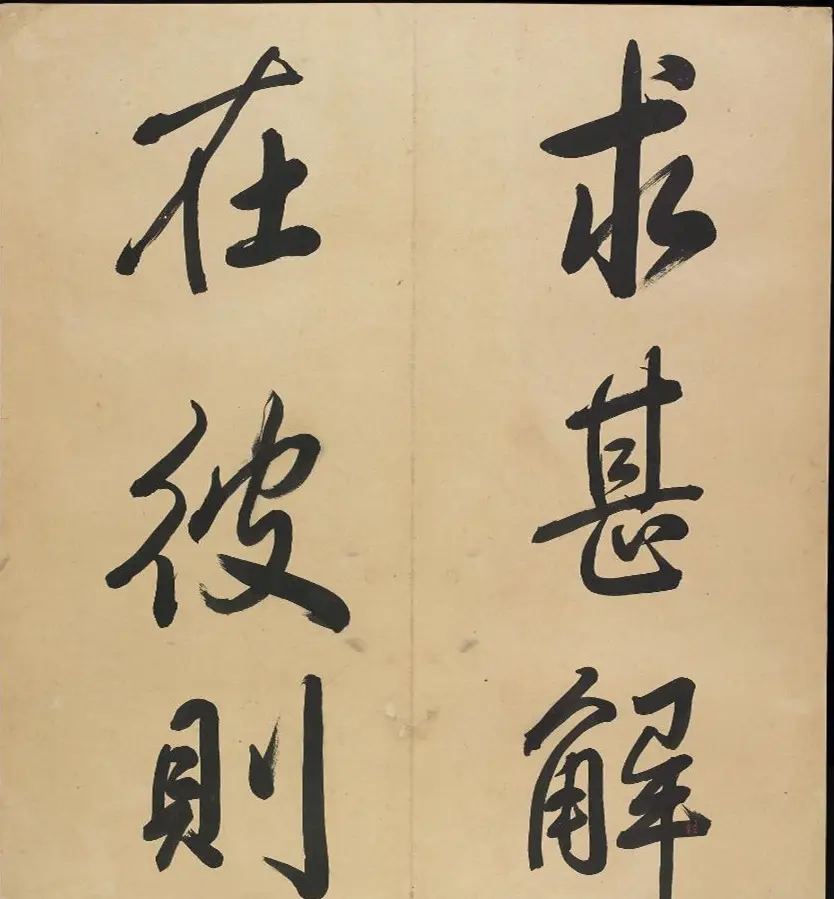 求甚解
在彼則